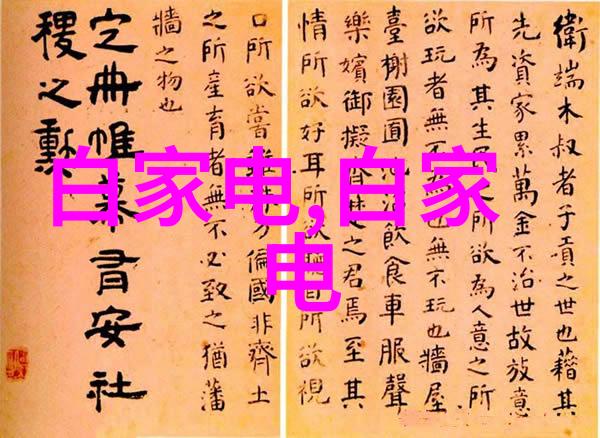 白家电,白家
电
衛端木叔者子貢之世也藉其
先資家累萬金不治世故放意
所為其生民之所欲為人意之所
欲玩者無不為也無不玩也牆屋
臺榭園囿池沼飲食車服聲
樂嬪御擬齊楚之君焉至其
情所欲好耳所欲聽目所欲視
口所欲嘗雖方偏國非齊土
之所產育者無不必致之猶藩
牆之物也
定冊帷幕有安社
稷之勳